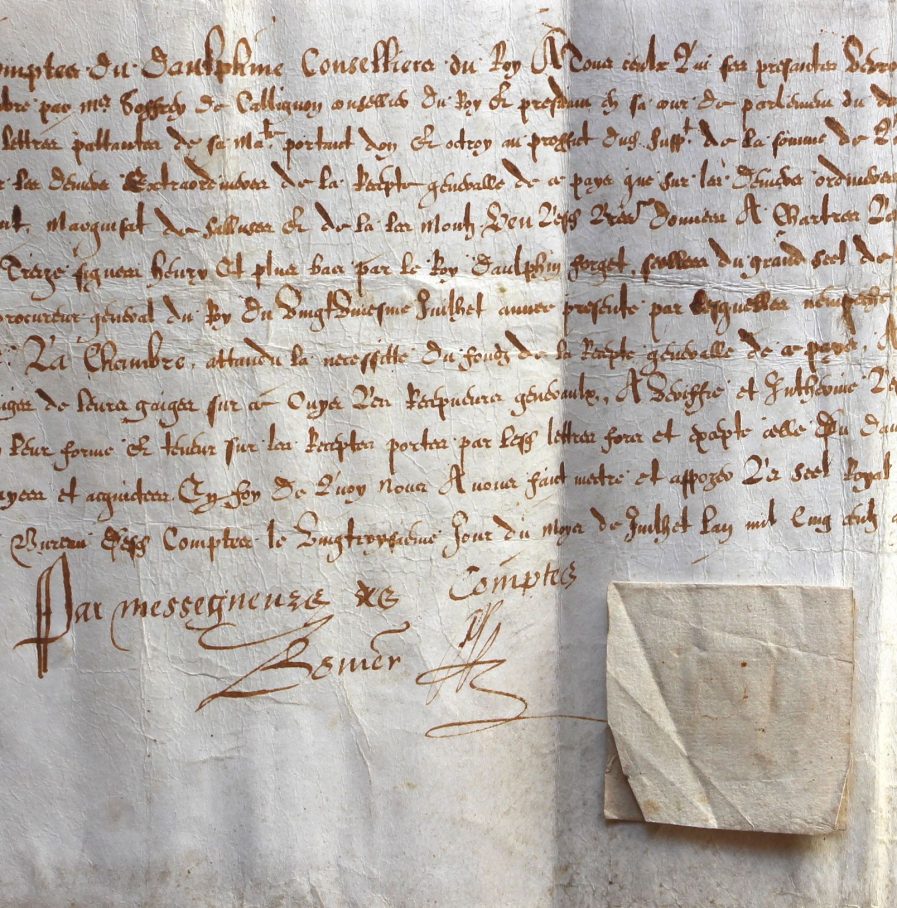 omptes du Daulphiné Conselliers du Roy A Tous ceulx Qui ses presantes Verro
bre par me Soffrey de Callignon conseiller du Roy et president en sa cour de parlement du da
lettres pattantes de sa Mate portant don et octroy au proffict dud. supt de la somme de
r les deniers Extraordineres de la Recepte generalle de ce pays que sur les deniers ordineres
nt, Marquisat de Salluces et de la les Montz Veu lesd. Donnees A Chartres Le
Treize signees Henry Et plus bas par le Roy Daulphin forget, seellees du grand seel de
procureur general du Roy du Vingtuniesme Juilhet annee presente par lesquelles n'empesche
La Chambre, attandu la necessitté du fondz de la Recepte generalle de ce pays, A
de leurs gaiges sur ce Ouyes Les Recepveurs generaulx, A Veriffié et Intheriné Les
leur forme et teneur sur les Receptes portes par lesd. lettres fors et excepté celle du dau
ayees et acquictees. En foy De Quoy Nous Avons faict mettre et appozer Le Seel Royal
Bureau desd. Comptes le Vingtroysieme Jour du moys de Juilhet Lan mil Cinq centz
Par messeigneurs des Comptes